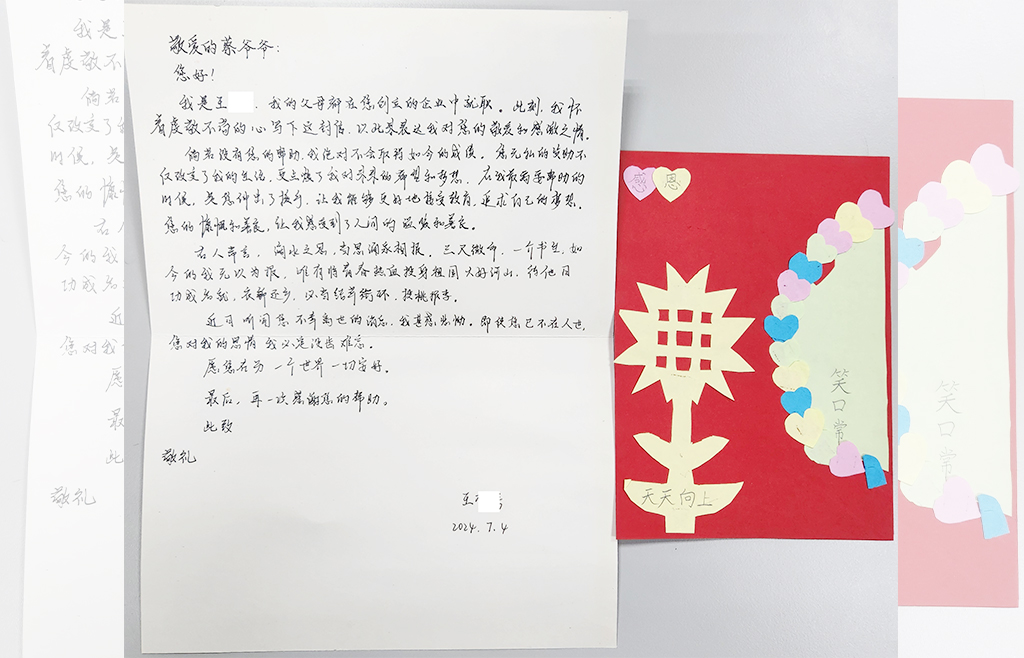 敬爱的蔡爷爷:
您好!
我是王 , 我的父母都在您创立的企业中就职。此刻,我怀
着虔敬不渝的心写下这封信,以此来表达我对您的敬爱和感激之情。
倘若没有您的帮助,我绝对不会取得如今的成绩。您无私的资助不
仅改变了我的生活,更点燃了我对未来的希望和梦想。在我最需要帮助的
时候,是您伸出了援手,让我能够更好地接受教育,追求自己的梦想。
您的慷慨和善良,让我感受到了人间的温暖和善良。
古人常言,滴水之恩,当思涌泉相报。三尺微命,一介书生,如
今的我无以为报,唯有将青春热血投身祖国大好河山,待他日
功成名就,衣锦还乡,必当结草衔环,投桃报李。
近日听闻您不幸离世的消息,我甚感悲恸。即使您已不在人世,
您对我的恩情我必定没齿难忘。
愿您在另一个世界一切安好。
最后,再一次感谢您的帮助。
此致
敬礼
王
2024.7.4
感恩
笑口常
天天向上
我是
着虔敬不
倘若
仅改变了
时候,是
您的慷
古人
今的我
功成名
近
您对我
愿
最
此
敬礼
笑口常